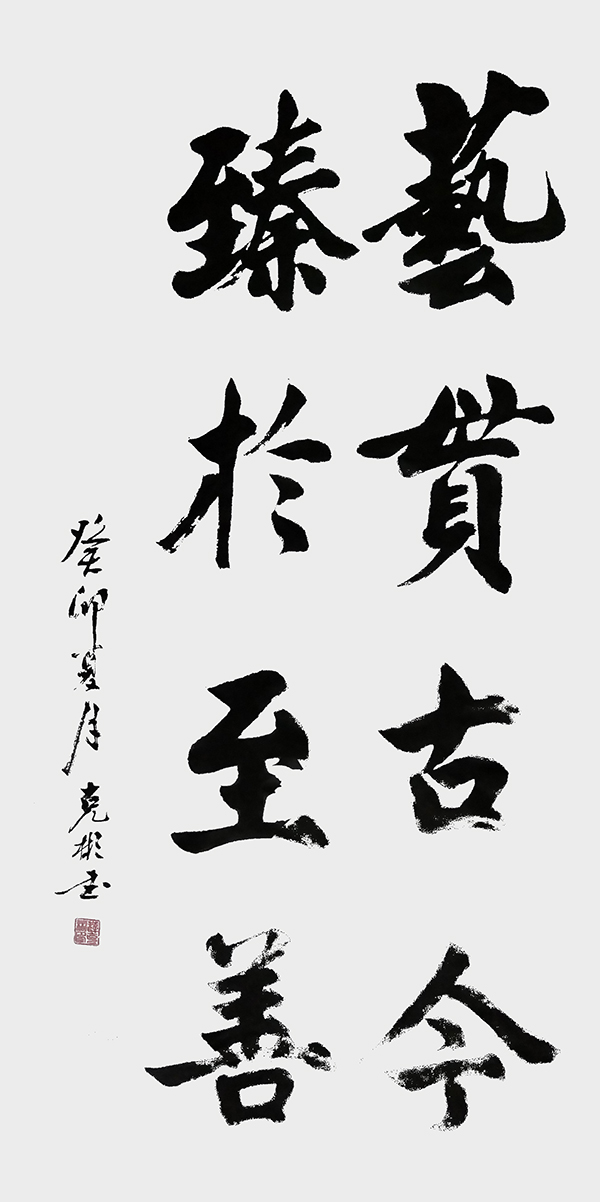 藝貫古今
臻於至善
癸卯夏月 克彬书